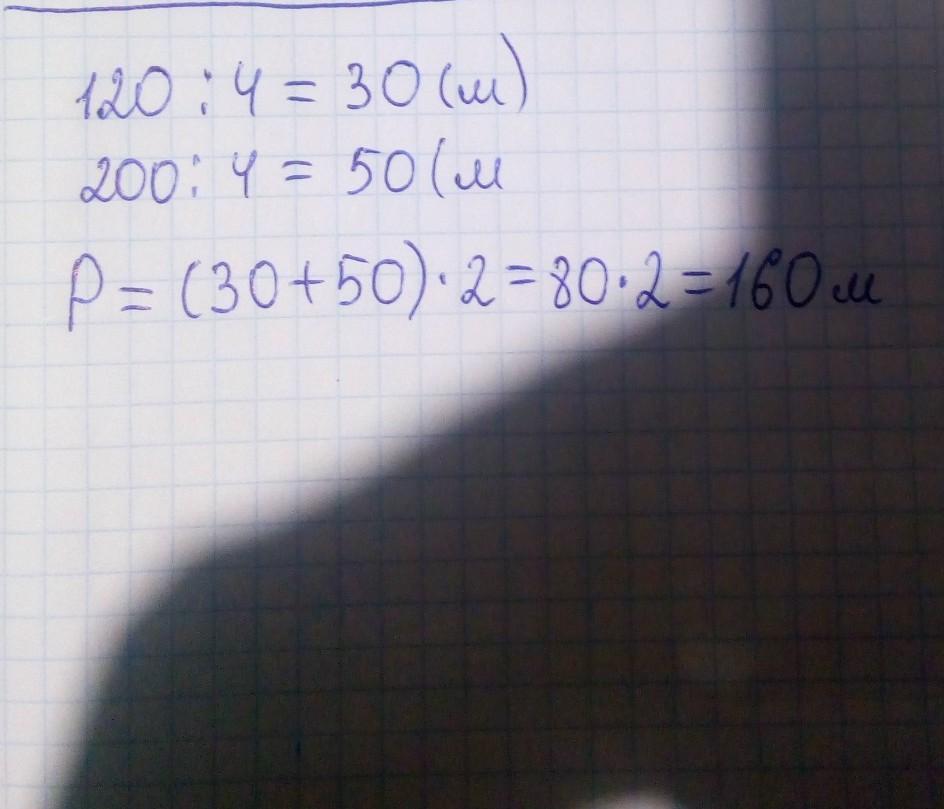 120 : 4 = 30 (м)
200 : 4 = 50 (м
P = (30+50)·2=80·2=160м